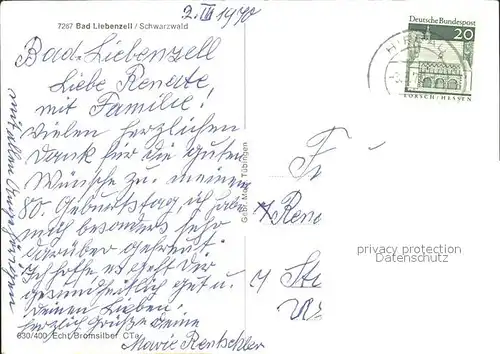 2. III 1970
7267 Bad Liebenzell / Schwarzwald
Bad-Liebenzell
Liebe Renate
mit Familie!
Vielen herzlichen
Dank für die guten
Wünsche zu meinem
80. Geburtstag, ich habe
mich besonders sehr
darüber gefreut.
Ich hoffe es geht dir
gesundheitlich gut u.
deinen Lieben.
Herzlich Grüße Deine
Marie Rentschler
mit allen Angehörigen
630/400 Echt Bromsilber
Gebr. Metz, Tübingen
Deutsche Bundespost
20
LORSCH/HESSEN
F
Rena
St
privacy protection
Datenschutz